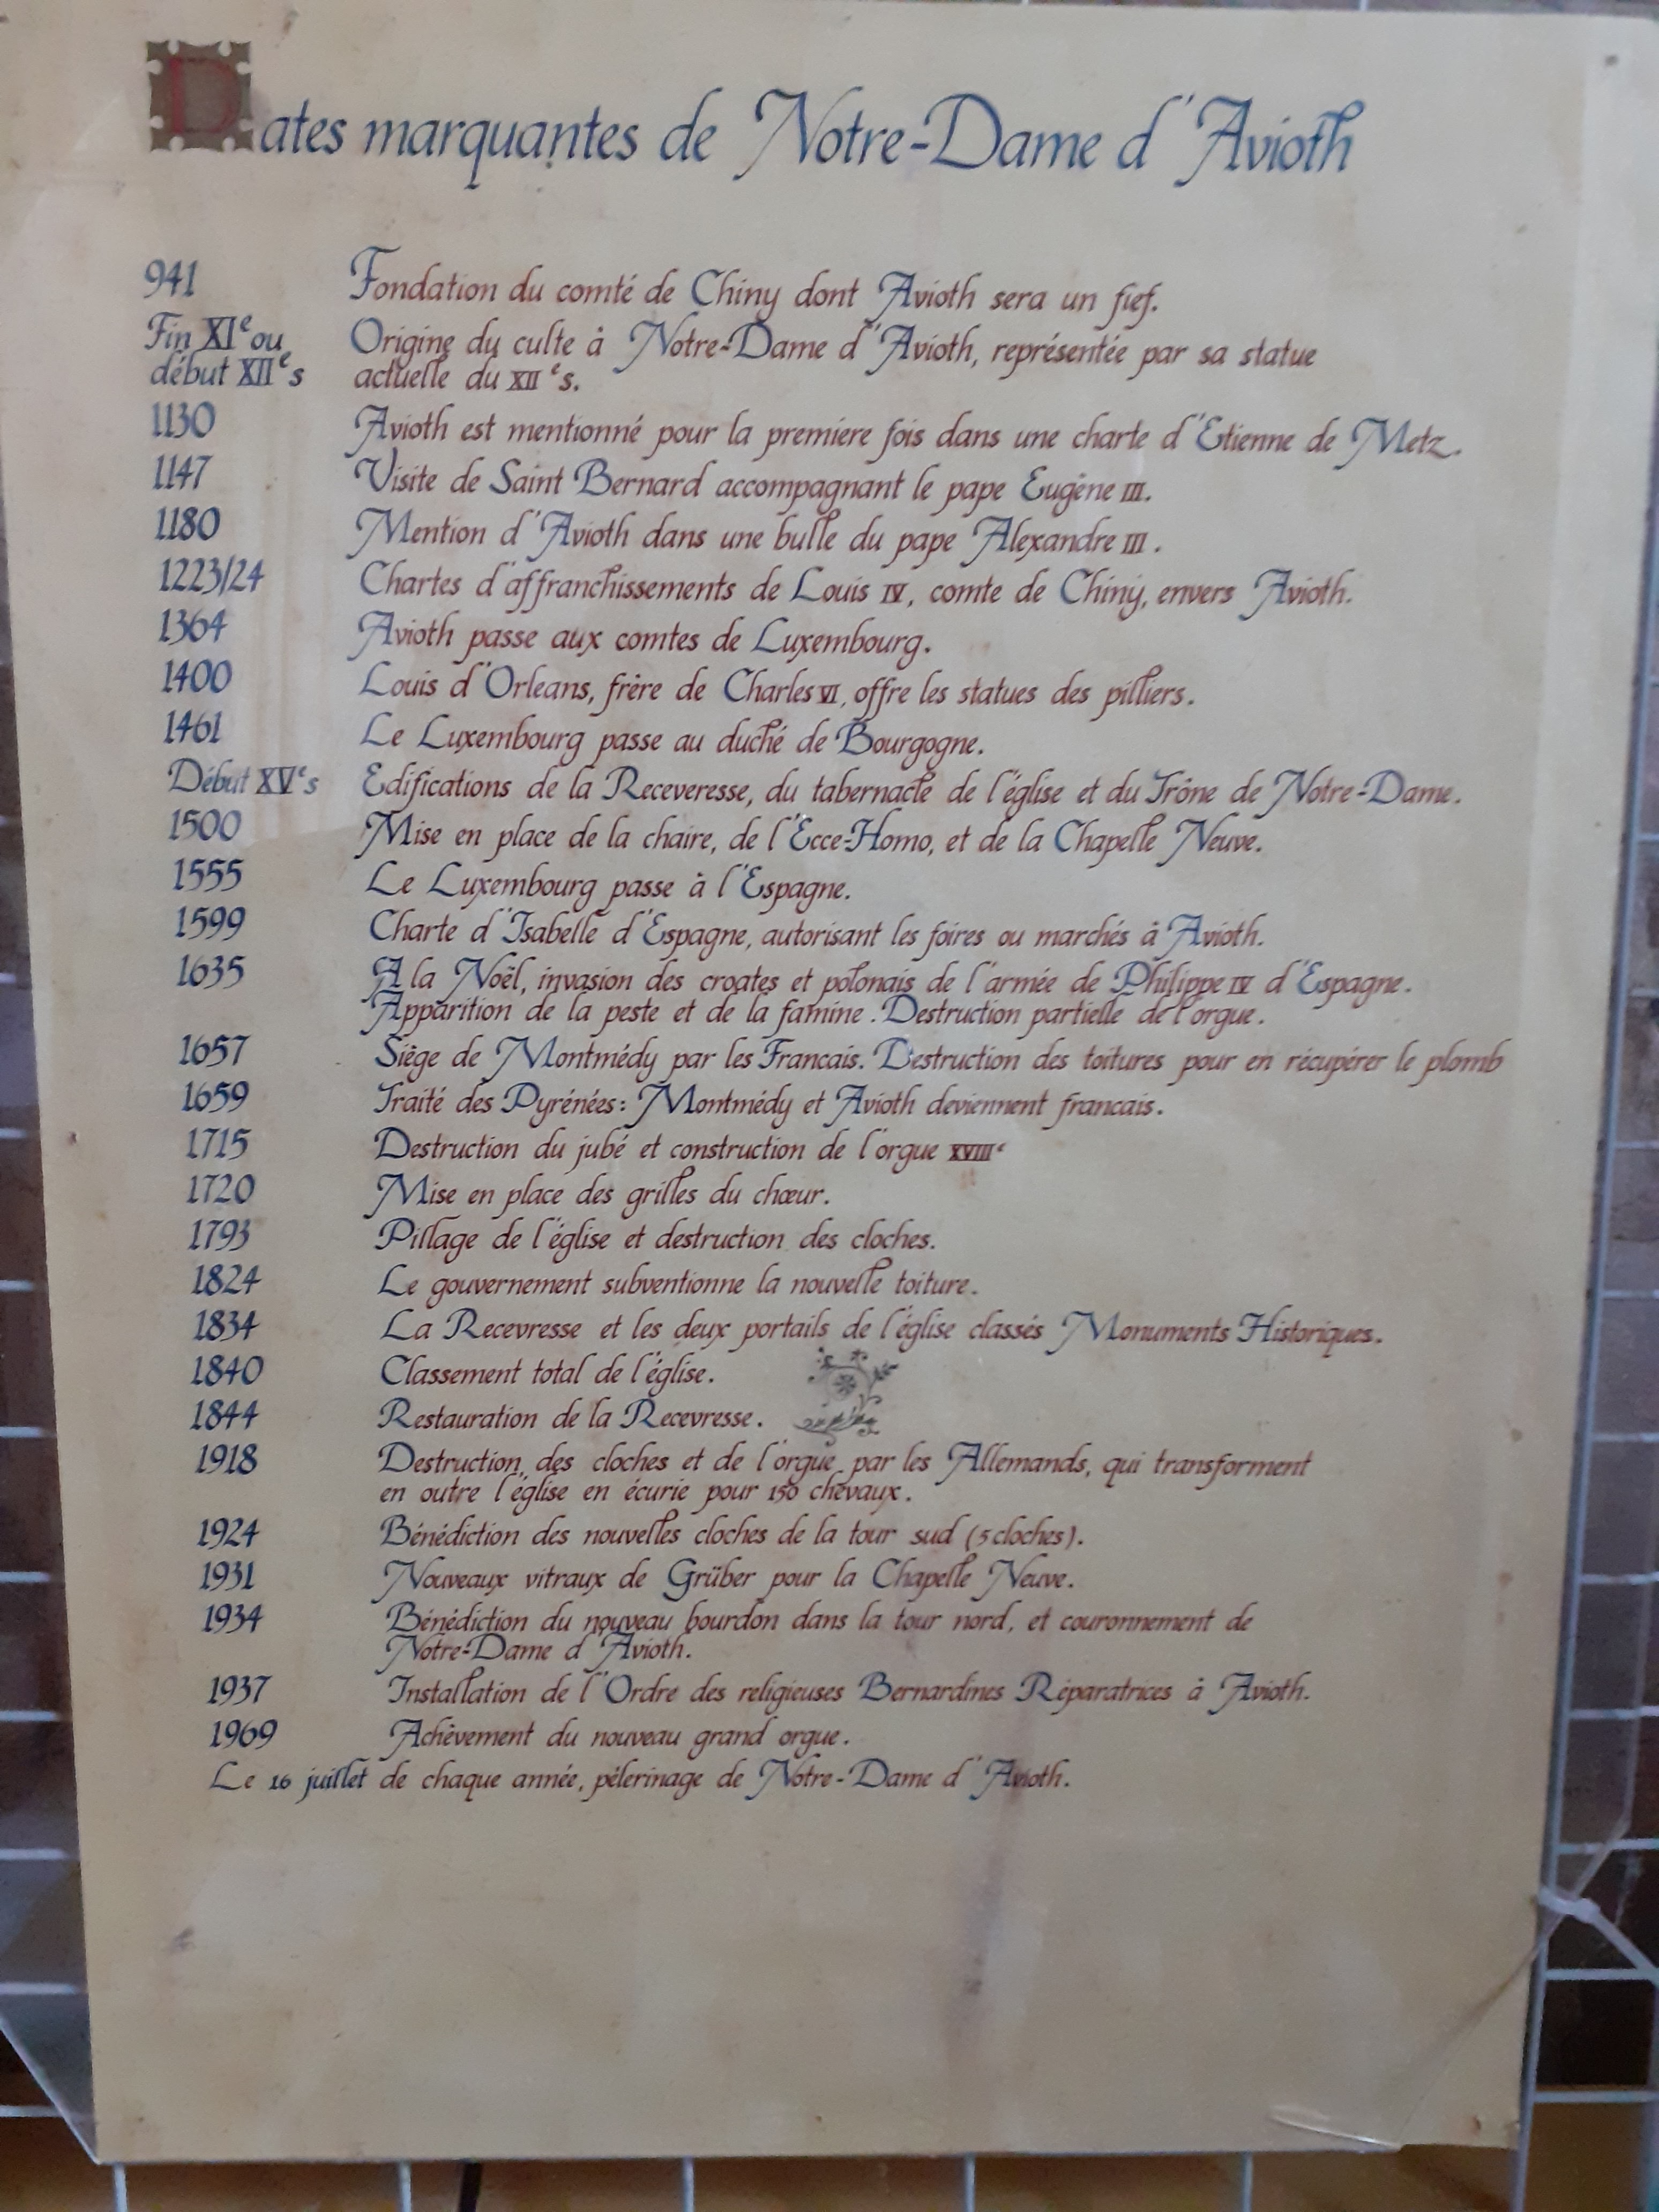 Dates marquantes de Notre-Dame d'Avioth
941 Fondation du comté de Chiny dont Avioth sera un fief.
Fin XIe ou Origine du culte à Notre-Dame d'Avioth, représentée par sa statue
début XIIe s actuelle du XIIe s.
1130 Avioth est mentionné pour la premiere fois dans une charte d'Etienne de Metz.
1147 Visite de Saint Bernard accompagnant le pape Eugène III.
1180 Mention d'Avioth dans une bulle du pape Alexandre III.
1223/24 Chartes d'affranchissements de Louis IV, comte de Chiny, envers Avioth.
1364 Avioth passe aux comtes de Luxembourg.
1400 Louis d'Orleans, frère de Charles VI, offre les statues des pilliers.
1461 Le Luxembourg passe au duché de Bourgogne.
Début XVe s Edifications de la Receveresse, du tabernacle de l'église et du Trône de Notre-Dame.
1500 Mise en place de la chaire, de l'Ecce-Homo, et de la Chapelle Neuve.
1555 Le Luxembourg passe à l'Espagne.
1599 Charte d'Isabelle d'Espagne, autorisant les foires ou marchés à Avioth.
1635 A la Noël, invasion des croates et polonais de l'armée de Philippe IV d'Espagne.
Apparition de la peste et de la famine. Destruction partielle de l'orgue.
1657 Siège de Montmédy par les Francais. Destruction des toitures pour en récupérer le plomb
1659 Traité des Pyrénées: Montmédy et Avioth deviennent francais.
1715 Destruction du jubé et construction de l'orgue XVIIIe
1720 Mise en place des grilles du chœur.
1793 Pillage de l'église et destruction des cloches.
1824 Le gouvernement subventionne la nouvelle toiture.
1834 La Recevresse et les deux portails de l'église classés Monuments Historiques.
1840 Classement total de l'église.
1844 Restauration de la Recevresse.
1918 Destruction des cloches et de l'orgue par les Allemands, qui transforment
en outre l'église en écurie pour 150 chevaux.
1924 Bénédiction des nouvelles cloches de la tour sud (5 cloches).
1931 Nouveaux vitraux de Grüber pour la Chapelle Neuve.
1934 Bénédiction du nouveau bourdon dans la tour nord, et couronnement de
Notre-Dame d'Avioth.
1937 Installation de l'Ordre des religieuses Bernardines Réparatrices à Avioth.
1969 Achèvement du nouveau grand orgue.
Le 16 juillet de chaque année, pélerinage de Notre-Dame d'Avioth.